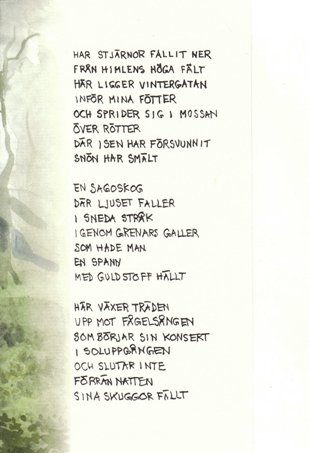 HAR STJÄRNOR FALLIT NER
FRÅN HIMLENS HÖGA FÄLT
HÄR LIGGER VINTERGATAN
INFÖR MINA FÖTTER
OCH SPRIDER SIG I MOSSAN
ÖVER RÖTTER
DÄR ISEN HAR FÖRSVUNNIT
SNÖN HAR SMÄLT

EN SAGOSKOG
DÄR LJUSET FALLER
I SNEDA STRÅK
IGENOM GRENARS GALLER
SOM HADE MAN
EN SPANN
MED GULDSTOFF HÄLLT

HÄR VÄXER TRÄDEN
UPP MOT FÅGELSÅNGEN
SOM BÖRJAR SIN KONSERT
I SOLUPPGÅNGEN
OCH SLUTAR INTE
FÖRRÄN NATTEN
SINA SKUGGOR FÄLLT